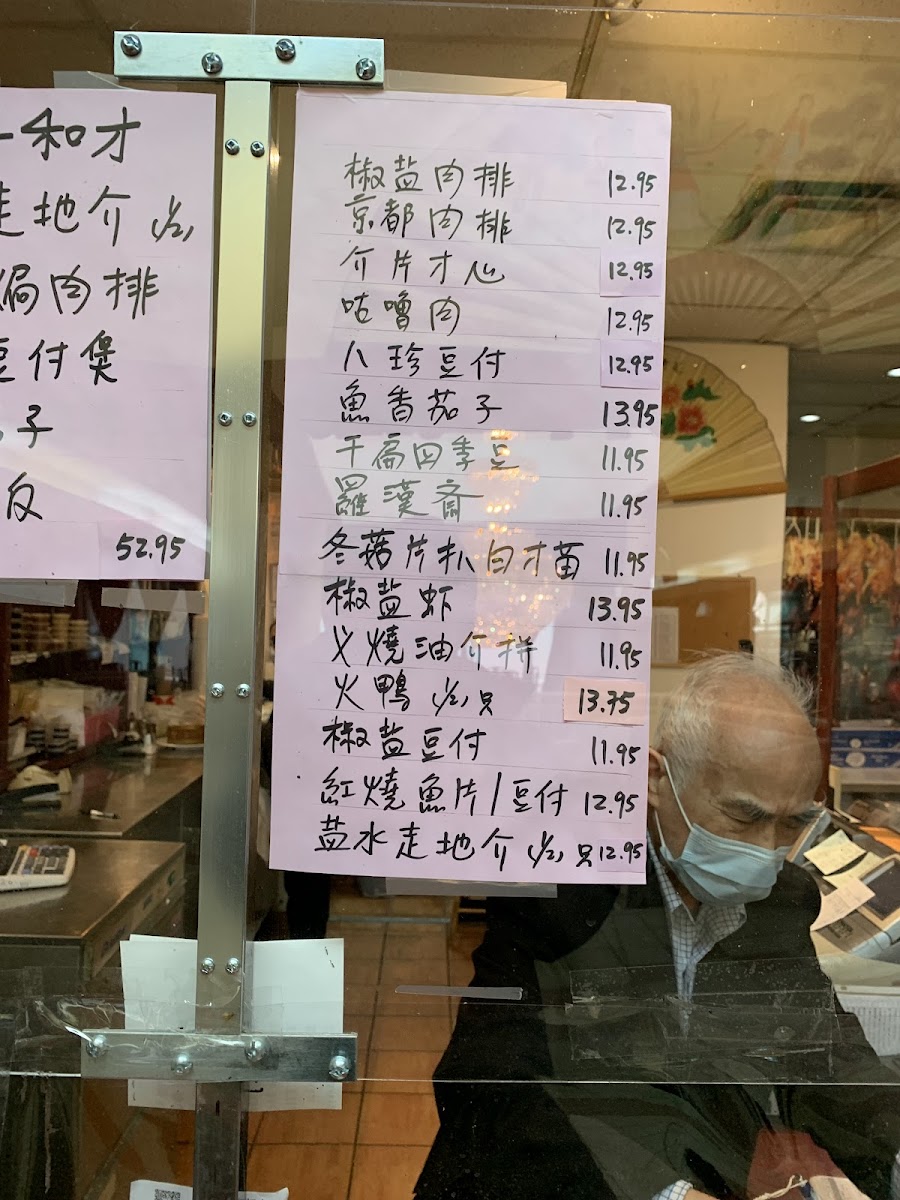 和才
走地介 1/2,
肉排
豆付煲
子
反
52.95
椒盐肉排 12.95
京都肉排 12.95
介片才心 12.95
咕嚕肉 12.95
八珍豆付 12.95
魚香茄子 13.95
干扁四季豆 11.95
羅漢斎 11.95
冬菇片扒白才苗 11.95
椒盐虾 13.95
义燒油介拼 11.95
火鴨 1/2,只 13.75
椒盐豆付 11.95
紅燒魚片/豆付 12.95
盐水走地介 1/2,只 12.95